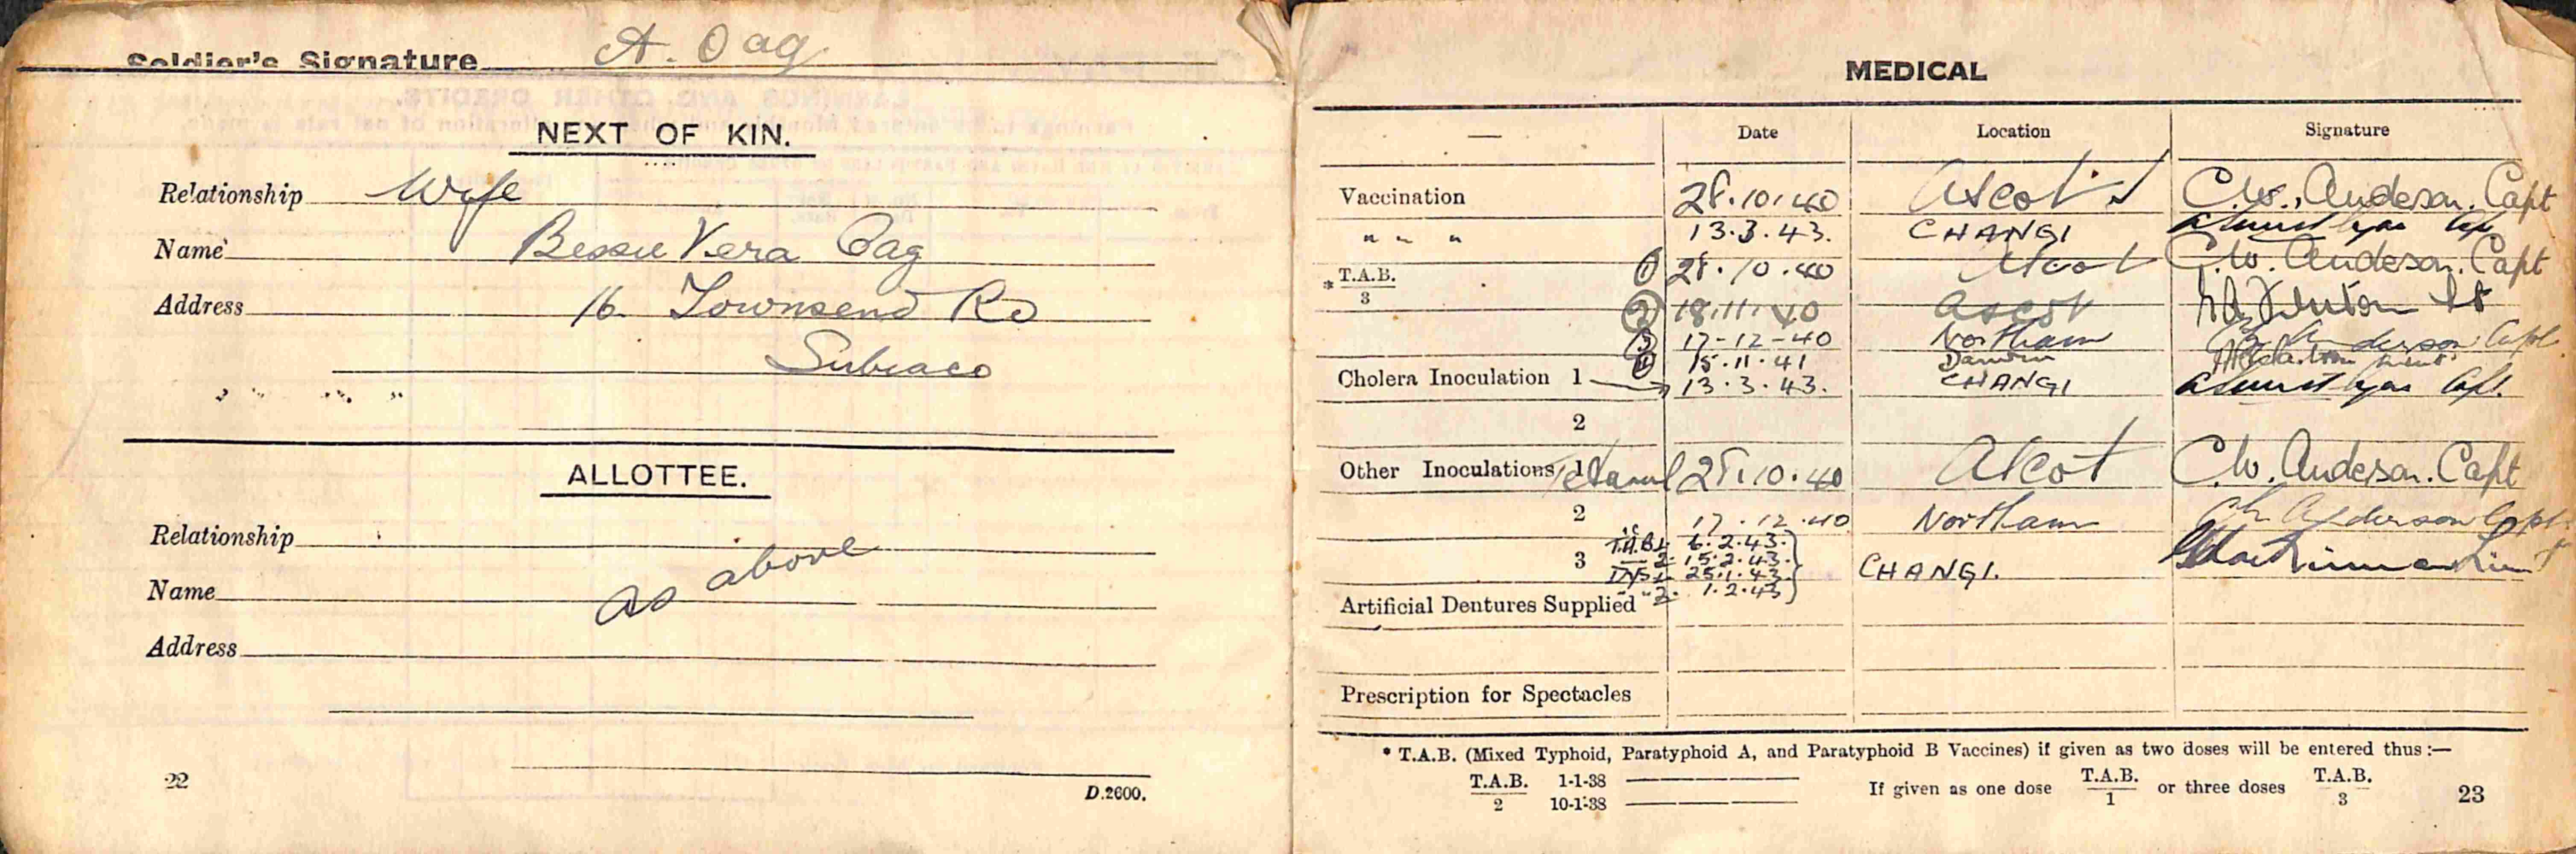 Soldier's Signature A. Oag
NEXT OF KIN.
Relationship Wife
Name Bessie Vera Oag
Address 16 Townsend Rd
Subiaco
" " " "
ALLOTTEE.
Relationship
Name as above
Address
22
D.2600.
MEDICAL
— Date Location Signature
Vaccination 28.10.40 Ascot C.W. Anderson. Capt
" " " 13.3.43. CHANGI
* T.A.B. / 3 (1) 28.10.40 Ascot C.W. Anderson. Capt
(2) 18.11.40 Ascot
(3) 17-12-40 Northam Anderson Capt.
(4) 15.11.41 Darwin
Cholera Inoculation 1 → 13.3.43. CHANGI Capt.
2
Other Inoculations 1 Tetanus 28.10.40 Ascot C.W. Anderson. Capt
2 17.12.40 Northam Anderson Capt.
T.A.B. 1 6.2.43.
3 — 2. 15.2.43. CHANGI.
DYS 1 25.1.43.
" 2. 1.2.43
Artificial Dentures Supplied
Prescription for Spectacles
* T.A.B. (Mixed Typhoid, Paratyphoid A, and Paratyphoid B Vaccines) if given as two doses will be entered thus :—
T.A.B. / 2 1-1-38 If given as one dose T.A.B. / 1 or three doses T.A.B. / 3
10-1-38
23